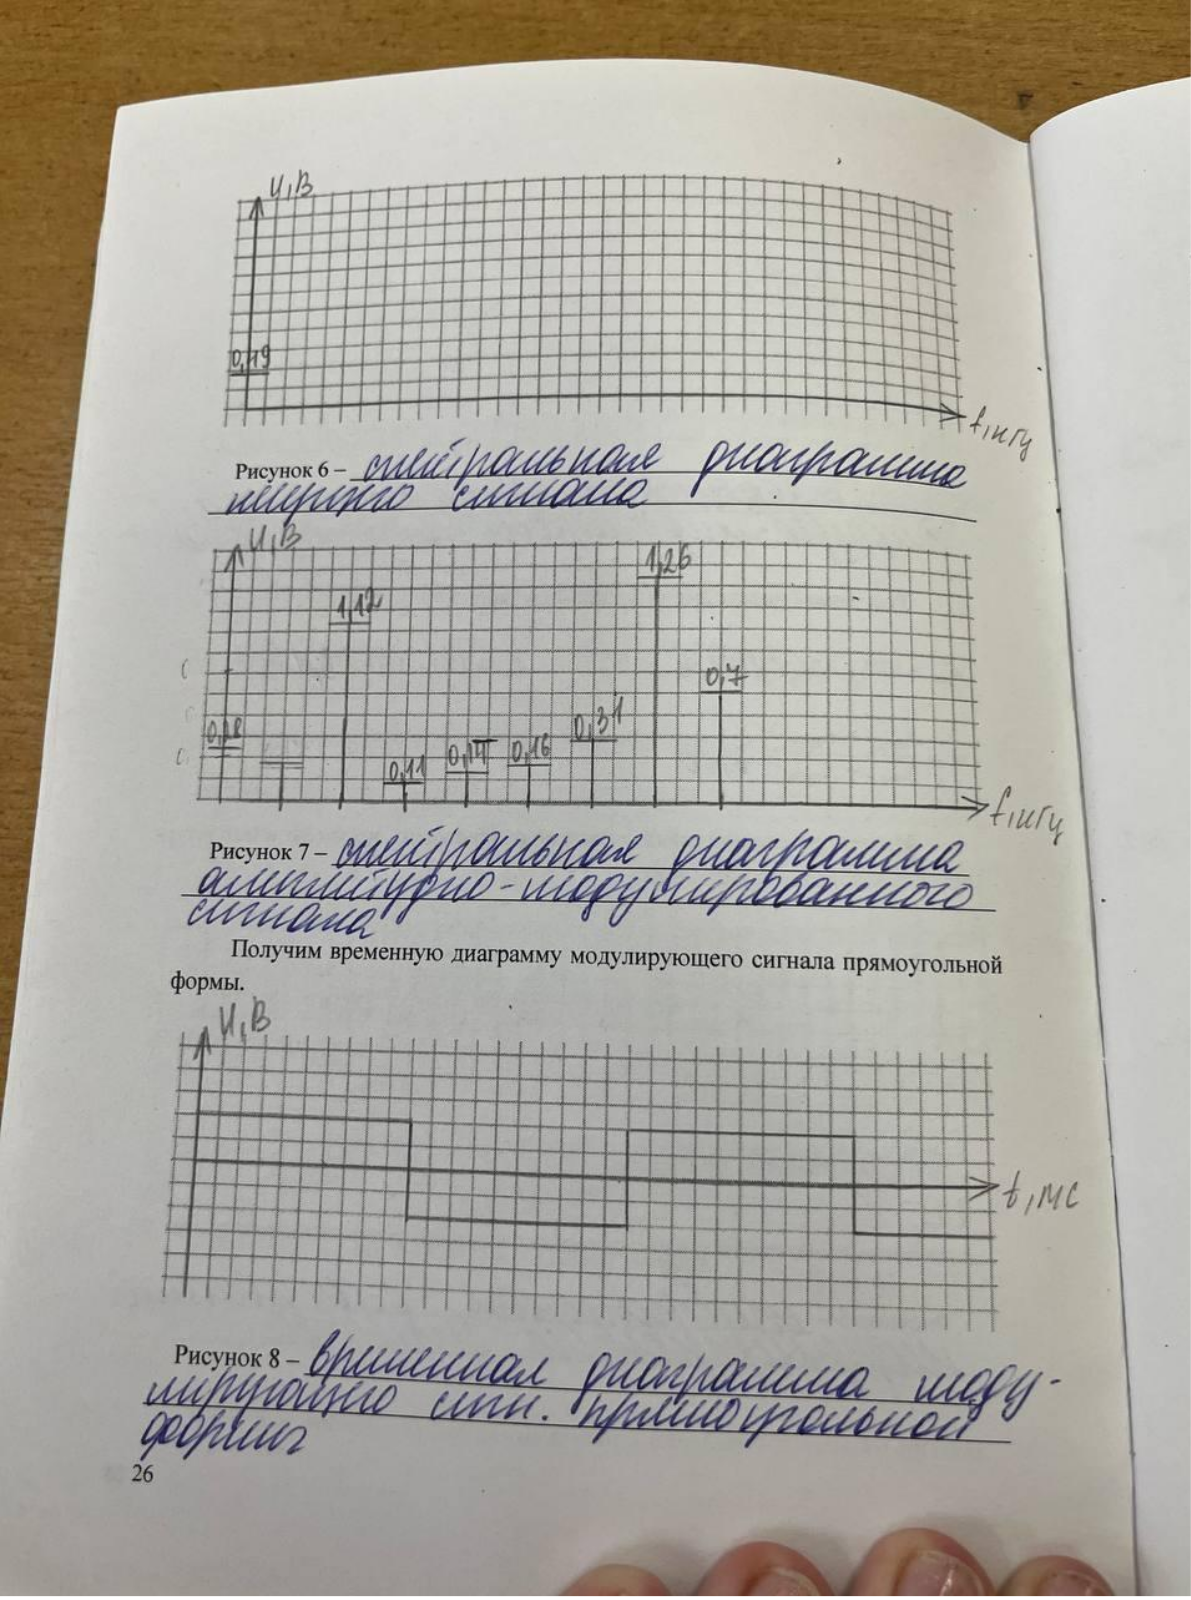 U,В
0,19
f,кГц
Рисунок 6 – спектральная диаграмма
сигнала
U,В
1,26
1,12
0,7
0,31
0,18
0,16
0,11
f,кГц
Рисунок 7 – спектральная диаграмма
амплитудно-модулированного
сигнала
Получим временную диаграмму модулирующего сигнала прямоугольной
формы.
U,В
t,мс
Рисунок 8 – временная диаграмма моду-
лирующего сигн. прямоугольной
формы
26